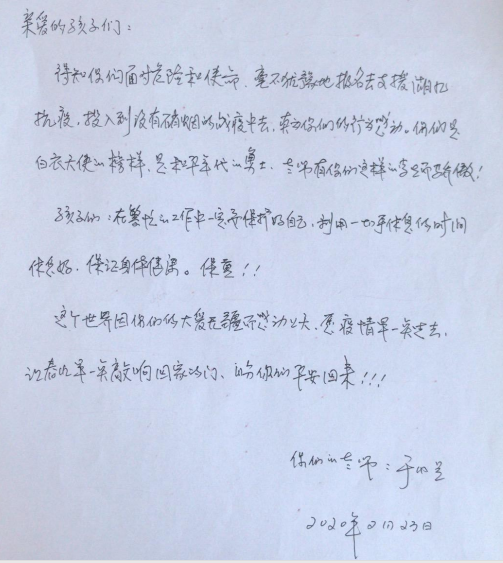 亲爱的孩子们:
得知你们面对危险和使命,毫不犹豫地报名去支援湖北
抗疫,投入到没有硝烟的战疫中去,真为你们的行为感动。你们是
白衣天使的榜样,是和平年代的勇士,老师有你们这样的学生而骄傲!
孩子们:在繁忙的工作中一定要保护好自己,利用一切可休息的时间
休息好,保证身体健康。保重!!
这个世界因你们的大爱无疆而感动 ,愿疫情早一点过去,
让春光早一点敲响回家的门,盼你们平安回来!!!
你们的老师:于
2020年2月23日